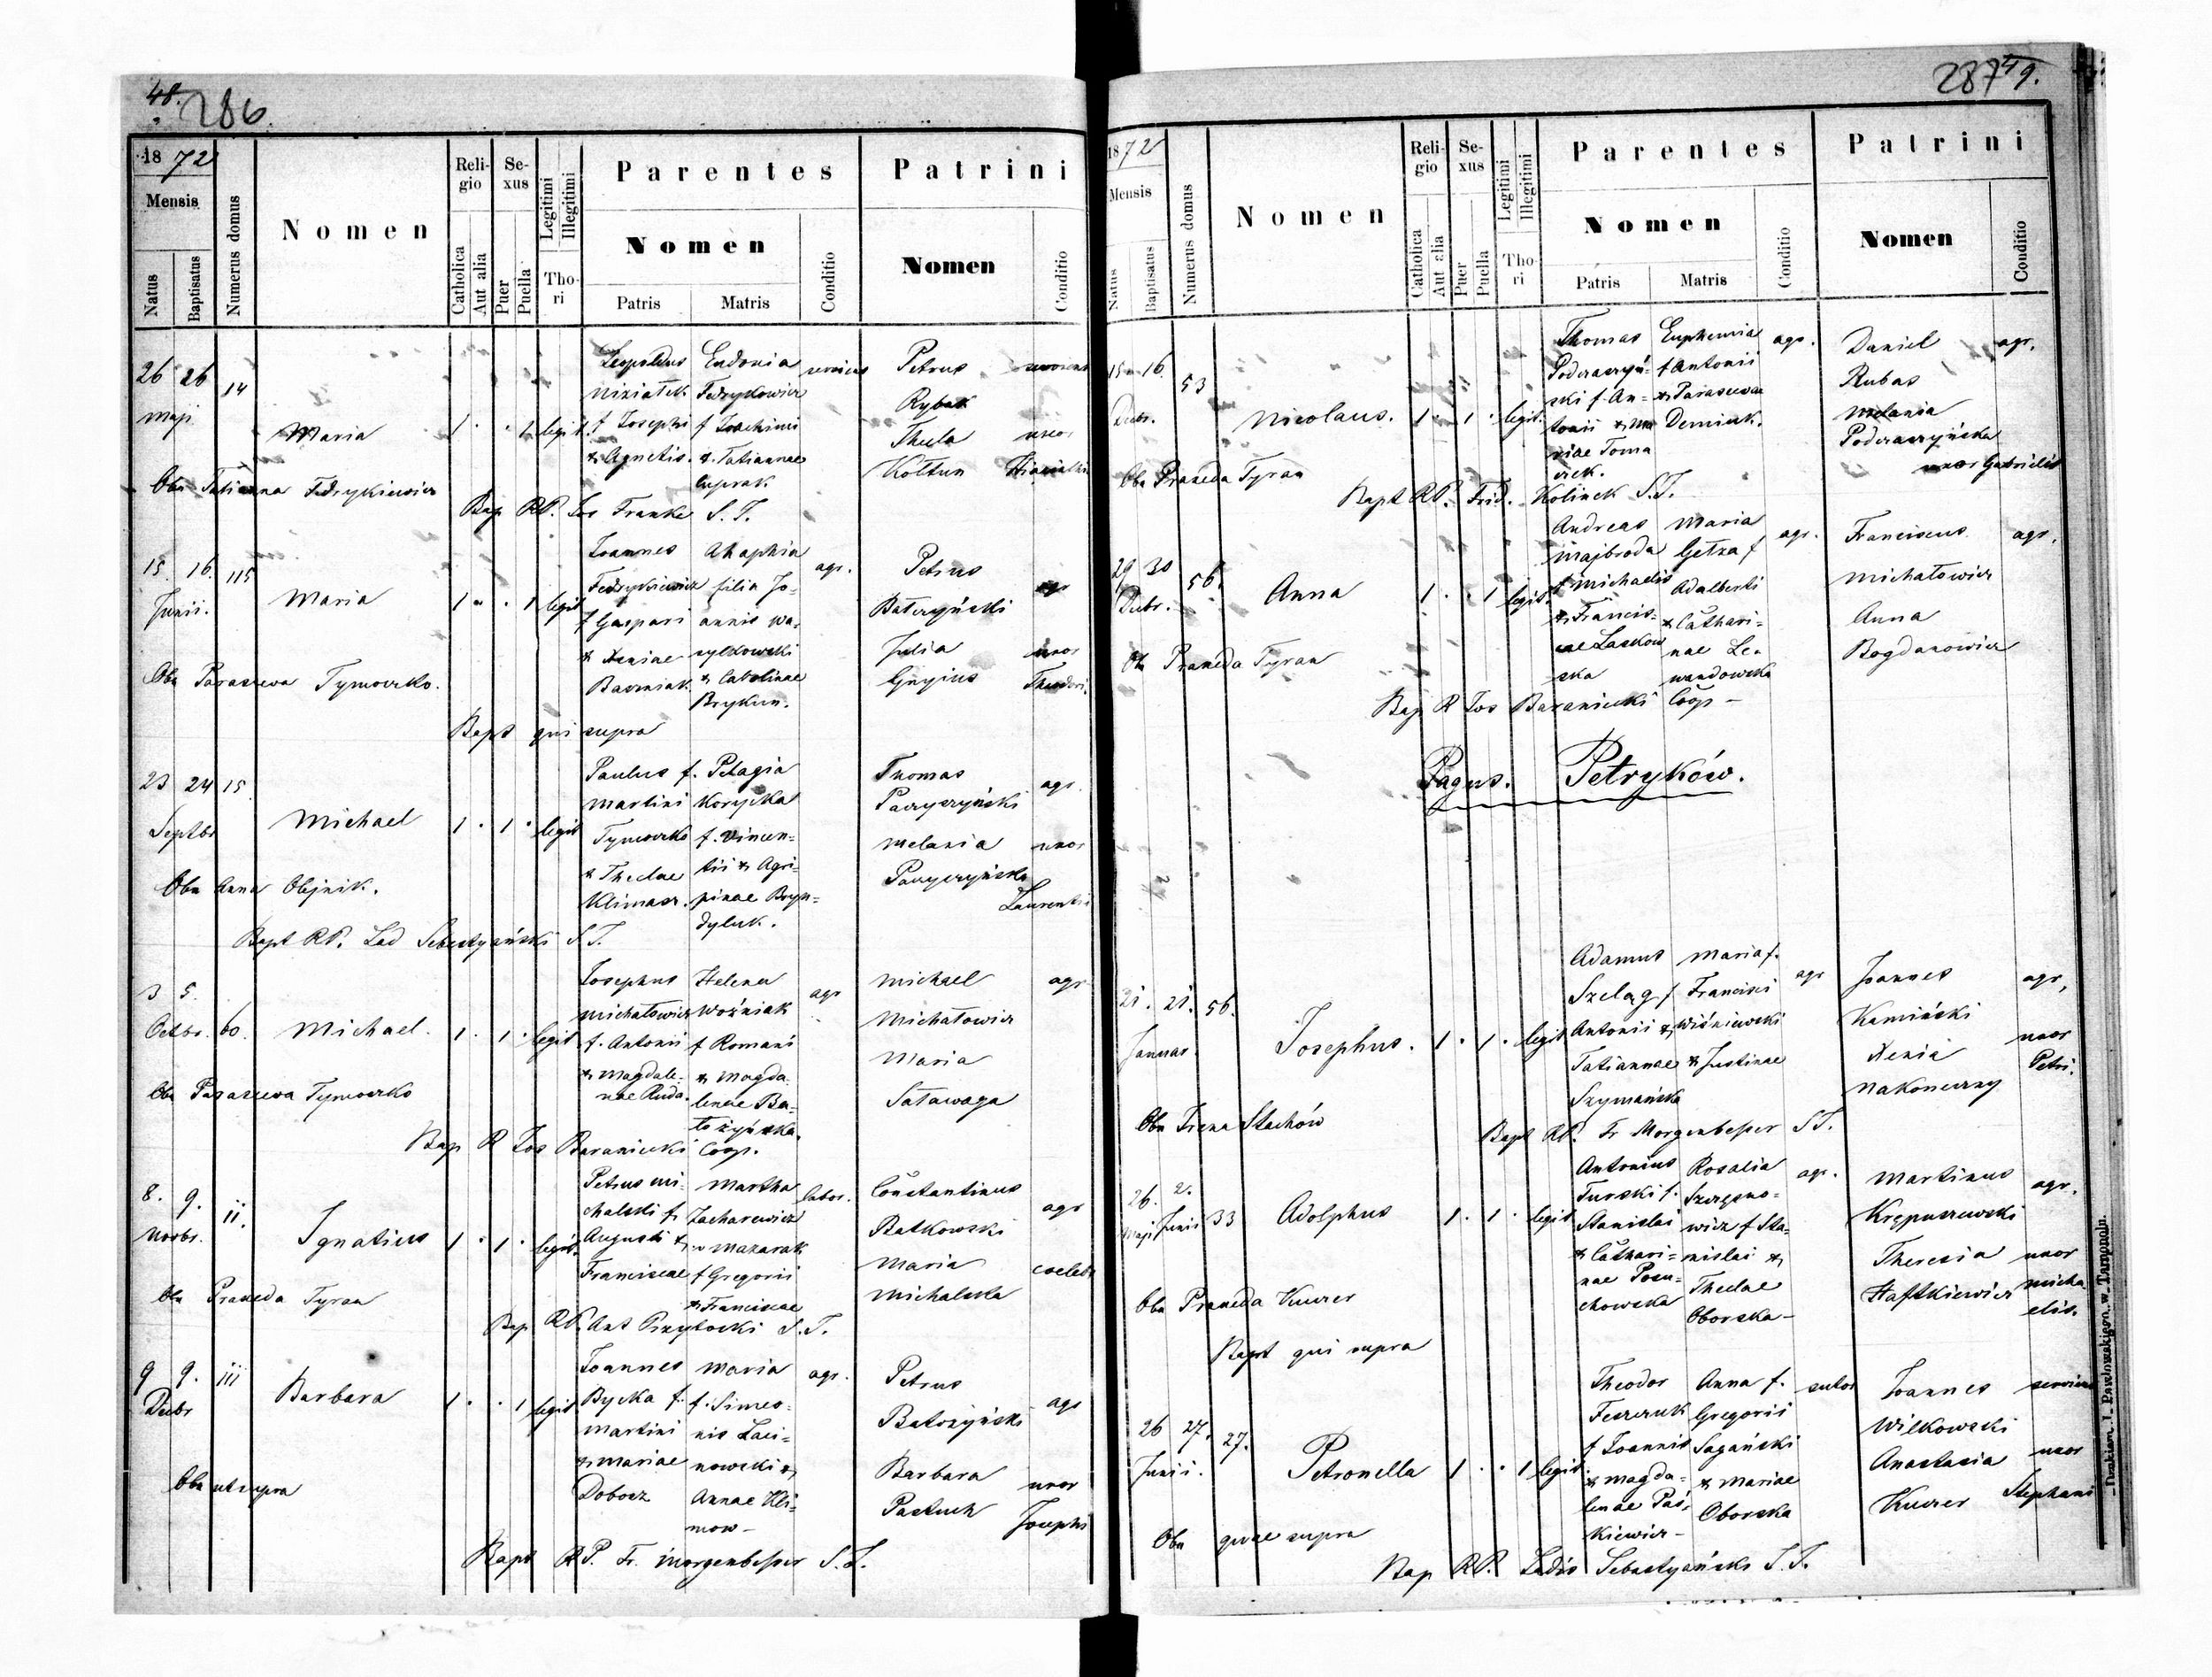 48.
286.
18 72
Mensis
Natus
Baptisatus
Numerus domus
Nomen
Religio
Catholica
Aut alia
Sexus
Puer
Puella
Legitimi
Illegitimi
Thori
Parentes
Nomen
Patris
Matris
Conditio
Patrini
Nomen
Conditio
26 26 14
Maji
Maria
1 · · 1 legit.
Leopoldus
Niziałek
f Josephi
& Agnetis.
Eudonia
Fedrykowicz
f Joachimi
& Tatiannae
Cuprak
Petrus
Rybak
Thecla uxor
Kołtun
Obs Tatianna Fedrykiewicz
Bap RP. Jos Franke S.J.
15. 16. 115
Junii.
Maria
1 · · 1 legit
Joannes
Fedrykiewicz
f Gaspari
& Xeniae
Bazniak
Ahaphia
filia Jo-
annis Wa-
sylkowski
& Carolinae
Brykun.
agr.
Petrus agr
Batczyński
Julia uxor
Gnyius Theodori.
Obs Paraszewa Tymoczko.
Bapt qui supra
23 24 15
Septbr
Michael
1 · 1 · legit
Paulus f.
Martini
Tymoczko
& Theclae
Klimasz.
Pelagia
Korycka
f. Vincen-
tii & Agri-
pinae Bryn-
dyluk.
Thomas agr.
Paczyczyński
Melania uxor
Paczyczyńska
Laurentii
Obs Anna Olejnik.
Bapt RP. Lad Sebastyański S J.
3 5.
Octbr. 60.
Michael.
1 · 1 · legit
Josephus
Michałowicz
f. Antonii
& Magdale-
nae Ruda.
Helena
Woźniak
f Romani
& Magda-
lenae Ba-
tożyńska.
agr
Michael agr
Michałowicz
Maria
Satawaga
Obs Paraszewa Tymoczko
Bap R Jos Baraniecki Coop.
8. 9. 11.
Novbr.
Ignatius
1 · 1 · legit.
Petrus Mi-
chalski f.
Augusti &
Franciscae
Martha
Zacharewicz
Mazarak
f Gregorii
& Franciscae
labor.
Constantinus
Batkowski agr
Maria coelebs
Michalska
Obs Praxeda Tyran
Bap RP. Ant Przybocki S.J.
9 9. 111
Decbr
Barbara
1 · · 1 legit
Joannes
Bycka f.
Martini
& Mariae
Dobosz
Maria
f. Simeo-
nis Laci-
nowski &
Annae Kli-
mow-
agr.
Petrus
Batożyński agr
Barbara uxor
Pastuch Josephi
Obs ut supra
Bapt RP. Fr. Morgenbesser S.J.
287
49.
18 72
Mensis
Natus
Baptisatus
Numerus domus
Nomen
Religio
Catholica
Aut alia
Sexus
Puer
Puella
Legitimi
Illegitimi
Thori
Parentes
Nomen
Patris
Matris
Conditio
Patrini
Nomen
Conditio
15 16. 53
Decbr.
Nicolaus.
1 · 1 · legit.
Thomas
Podczaszyń-
ski f. An-
tonii & Ma
riae Toma
szek.
Euphemia
f Antonii
& Paraszewae
Demiuk.
agr.
Daniel agr.
Rubas
Melania
Podczaszyńska
uxor Gabrielis
Obs Praxeda Tyran
Bapt RP. Frid. Kolinek S.J.
29 30 56.
Decbr.
Anna
1 · · 1 legit.
Andreas
Majbroda
f Michaelis
& Francis-
cae Laskow
ska
Maria
Getza f
Adalberti
& Cathari-
nae Le-
wandowska
agr.
Franciscus agr.
Michałowicz
Anna
Bogdanowicz
Obs Praxeda Tyran
Bap R Jos Baraniecki Coop-
Pagus. Petryków.
21. 21. 56.
Januar.
Josephus.
1 · 1 · legit
Adamus
Szeląg f
Antonii &
Tatiannae
Szymańska
Maria f.
Francisci
Wiśniewski
& Justinae
agr
Joannes agr.
Kamiński
Xenia uxor
Nakoneczny Petri.
Obs Irena Stachów
Bapt RP. Fr Morgenbesser S J.
26. 2.
Maji Junii 33
Adolphus
1 · 1 · legit
Antonius
Turski f.
Stanislai
& Cathari-
nae Posu-
chowska
Rosalia
Szczepno-
wicz f Sta-
nislai &
Theclae
Oborska-
agr.
Martinus agr.
Krępuszewski
Theresia uxor
Haftkiewicz Micha-
elis.
Obs Praxeda Kucer
Bapt qui supra
26 27. 27.
Junii.
Petronella
1 · · 1 legit
Theodor
Feszczuk
f Joannis
& Magda-
lenae Paś-
kiewicz-
Anna f.
Gregorii
Sagański
& Mariae
Oborska
sutor
Joannes
Wilkowski
Anastasia uxor
Kucer Stephani
Obs quae supra
Bap RP. Ladis Sebastyański S.J.
Drukiem J. Pawłowskiego w Tarnopolu.